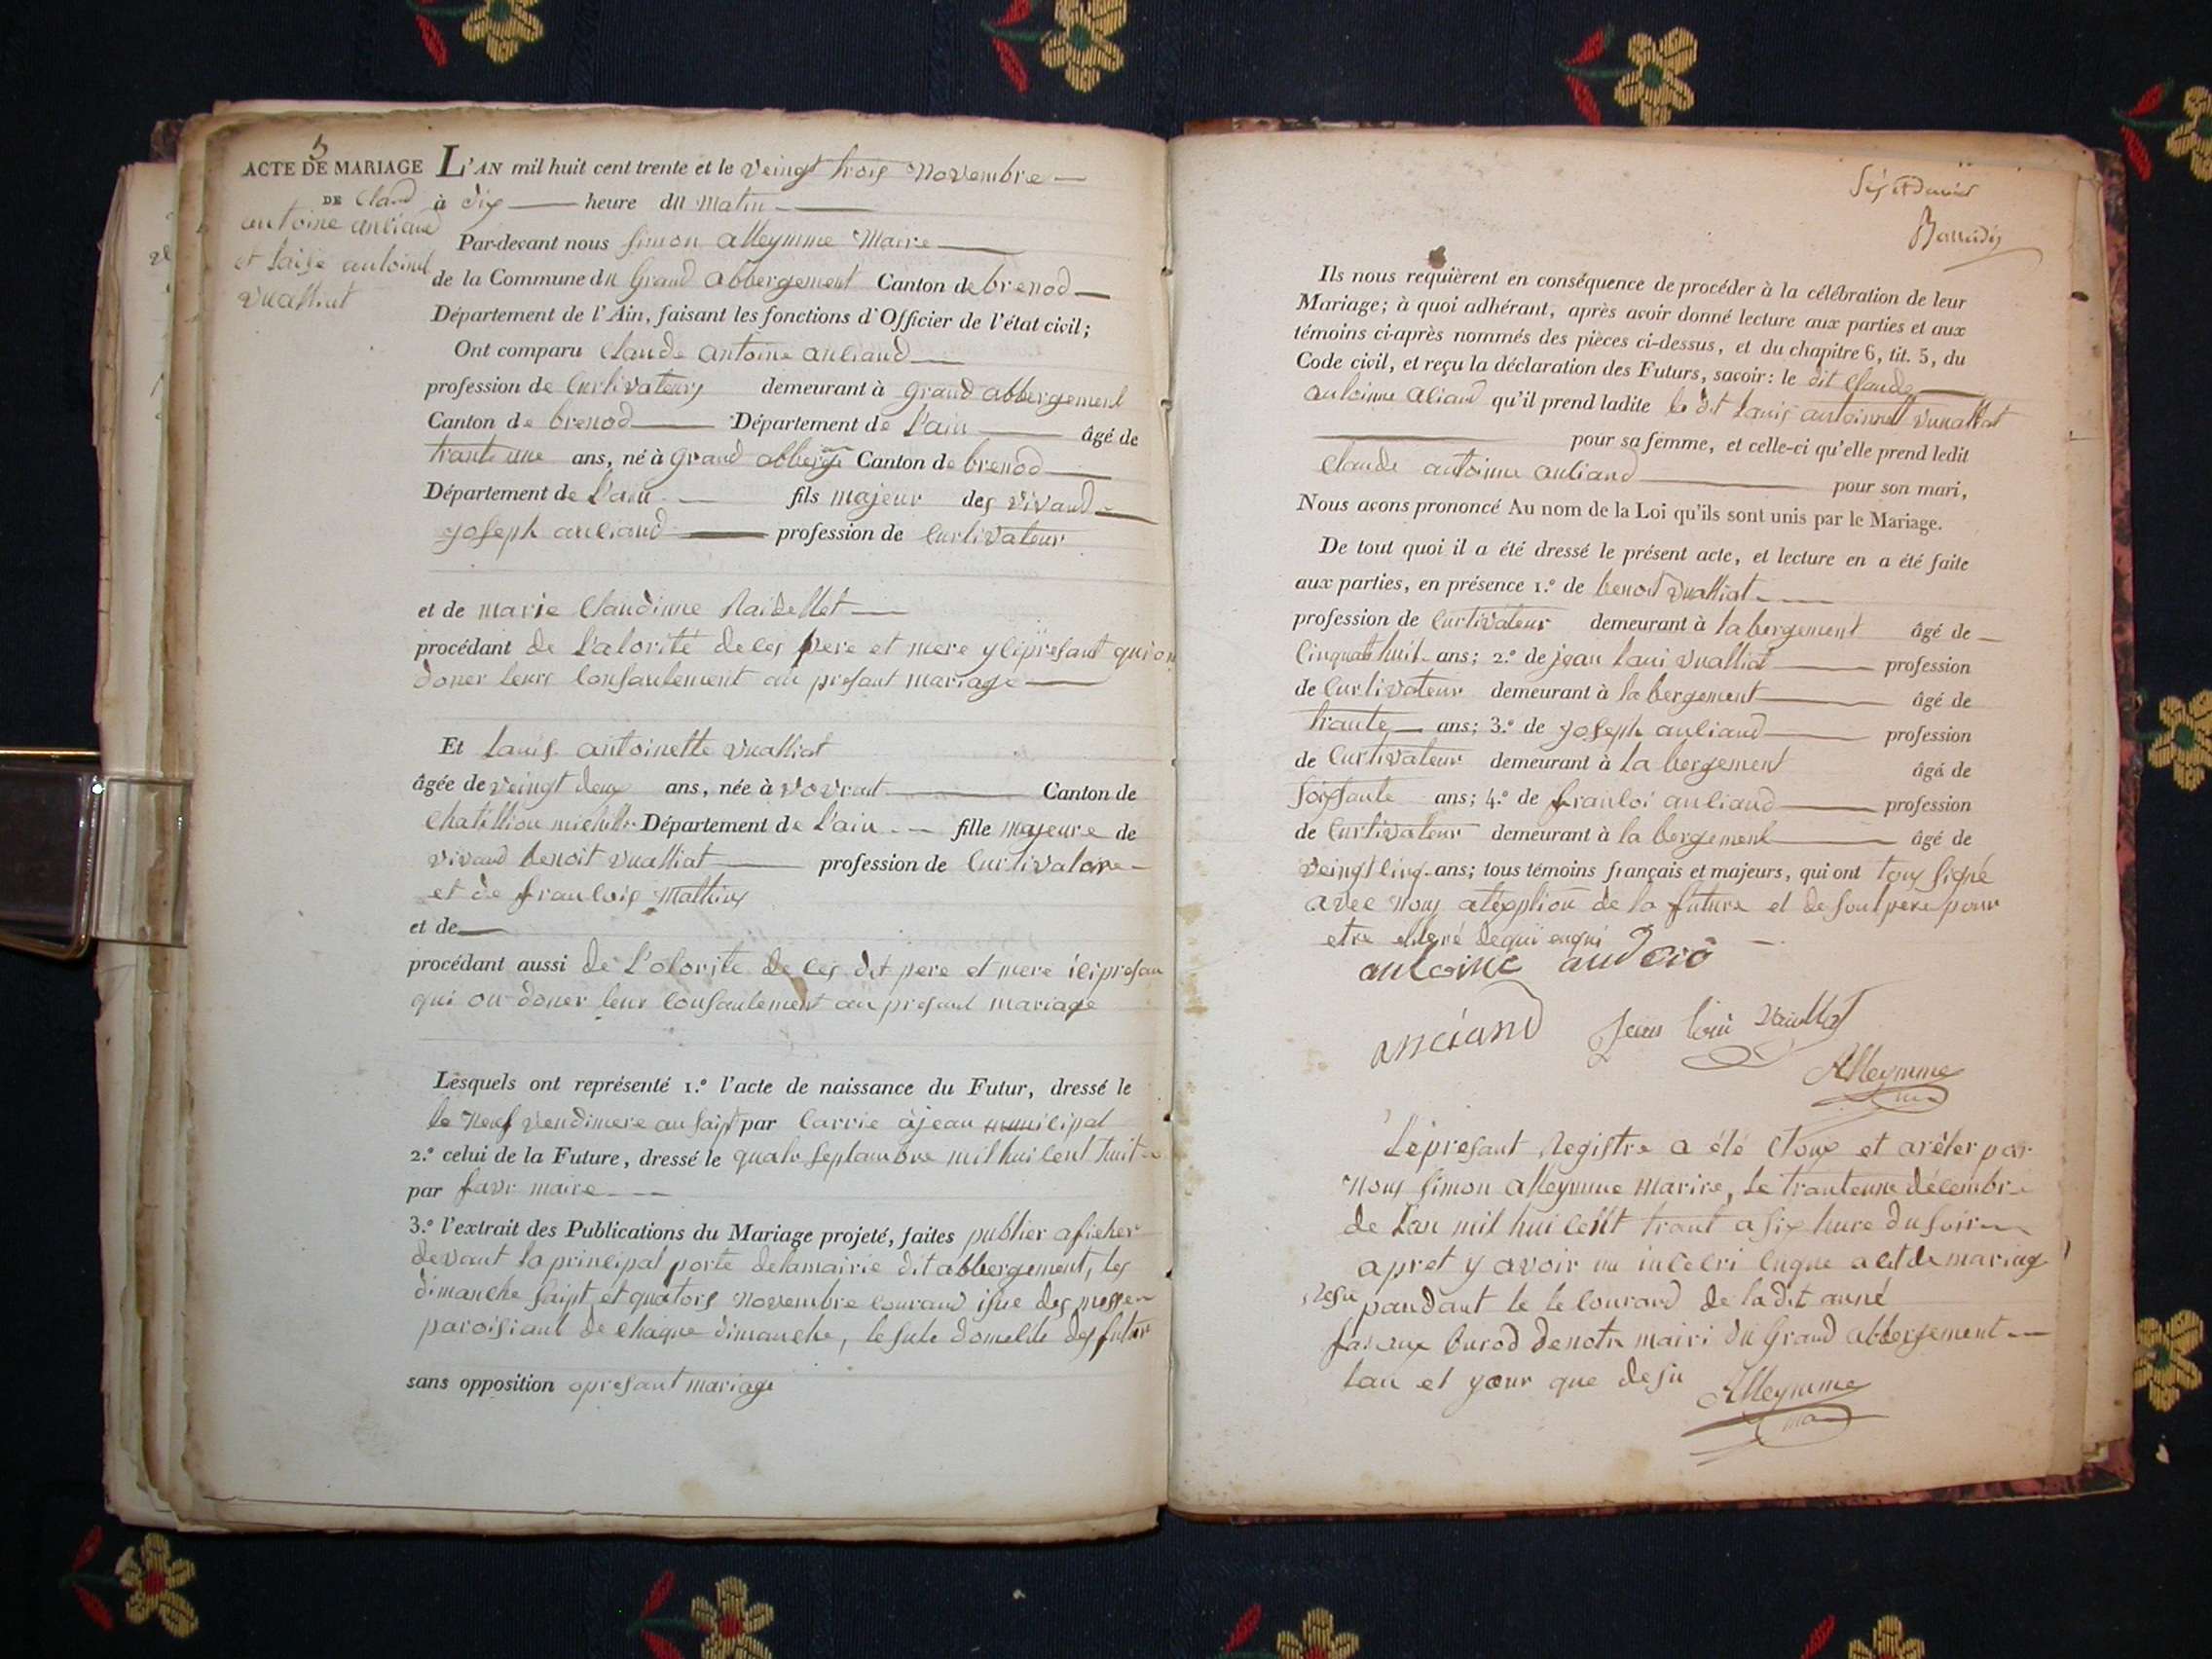 5
ACTE DE MARIAGE
DE Claud
antoine anciand
et laise antoinet
vualliat
L'AN mil huit cent trente et le veingt trois novembre
à dix heure du matin
Par-devant nous simon alleymme Maire
de la Commune du grand abbergement Canton de brenod
Département de l'Ain, faisant les fonctions d'Officier de l'état civil;
Ont comparu claude antoine anciand
profession de curtivateurs demeurant à grand abbergement
Canton de brenod Département de l'ain âgé de
trante une ans, né à grand abberge Canton de brenod
Département de l'ain fils majeur des vivand
joseph anciand profession de curtivateur
et de marie claudinne
procédant de l'alorité de ces pere et mere y cipresant qui on
doner leurs consantement au presant mariage
Et Louis antoinette vualliat
âgée de veingt deux ans, née à vovrait Canton de
chatillion michelle Département de l'ain fille majeure de
vivand benoit vualliat profession de curtivatore
et de francois Mathieux
et de
procédant aussi de l'alorite de ces dit pere et mere icipresan
qui on doner leur consantement au presant mariage
Lesquels ont représenté 1.° l'acte de naissance du Futur, dressé le
le neuf vendimere an saipt par carrie àjean municipal
2.° celui de la Future, dressé le quatr septambre mil hui cent huit
par favr maire
3.° l'extrait des Publications du Mariage projeté, faites publier aficher
devant la principal porte delamairie dit abbergement, les
dimanche saipt et quators novembre courand isue des messe
paroisiant de chaque dimanche, le sute domelite des futur
sans opposition apresant mariage
Sixt et dernier
Ils nous requièrent en conséquence de procéder à la célébration de leur
Mariage; à quoi adhérant, après avoir donné lecture aux parties et aux
témoins ci-après nommés des pièces ci-dessus, et du chapitre 6, tit. 5, du
Code civil, et reçu la déclaration des Futurs, savoir: le dit claude
antoinne aliand qu'il prend ladite le dit Louis antoinnett vuualliat
pour sa femme, et celle-ci qu'elle prend ledit
claude antoinne anliand pour son mari,
Nous avons prononcé Au nom de la Loi qu'ils sont unis par le Mariage.
De tout quoi il a été dressé le présent acte, et lecture en a été faite
aux parties, en présence 1.° de benoit vualliat
profession de curtivateur demeurant à labergement âgé de
cinquat huit ans; 2.° de jean Laui vualliat profession
de curtivateur demeurant à la bergement âgé de
trante ans; 3.° de joseph anliand profession
de curtivateur demeurant à la bergement âgé de
soissante ans; 4.° de francoi anliand profession
de curtivateur demeurant à la bergement âgé de
veingt cinq ans; tous témoins français et majeurs, qui ont tous signé
avec nous atexption de la future et de sont pere pour
etre
antoine
anciand Jean loui vualliat
Alleymme
Lépresant Registre a été cloux et aréter par
nous simon alleymme marire, le trantenne décembre
de Lan mil hui cent trant a six hure du soir
apret y avoir incecri cuque act de mariag
resu pandant le le courard de la dit anné
fai aux burod denotre mairi du grand abbergement
Lan et jour que desu
Alleymme